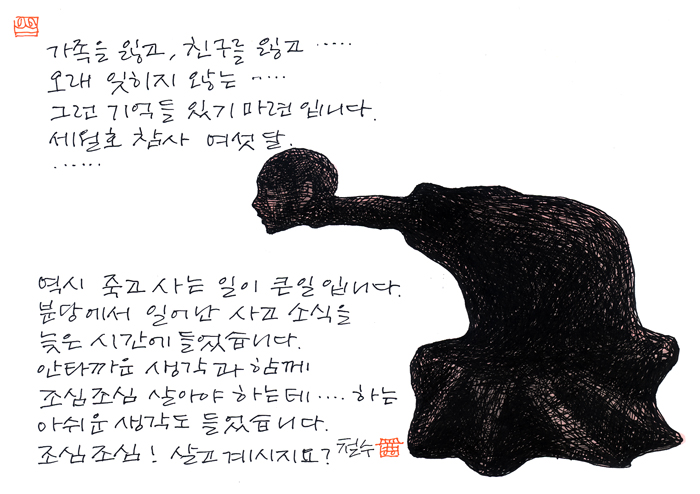 가족을 잃고, 친구를 잃고 .....
오래 잊히지 않는 .....
그런 기억들 있기 마련입니다.
세월호 참사 여섯달.
......
역시 죽고 사는 일이 큰일입니다.
분당에서 일어난 사고 소식을
늦은 시간에 들었습니다.
안타까운 생각과 함께
조심조심 살아야 하는데.... 하는
아쉬운 생각도 들었습니다.
조심조심! 살고 계시지요? 철수